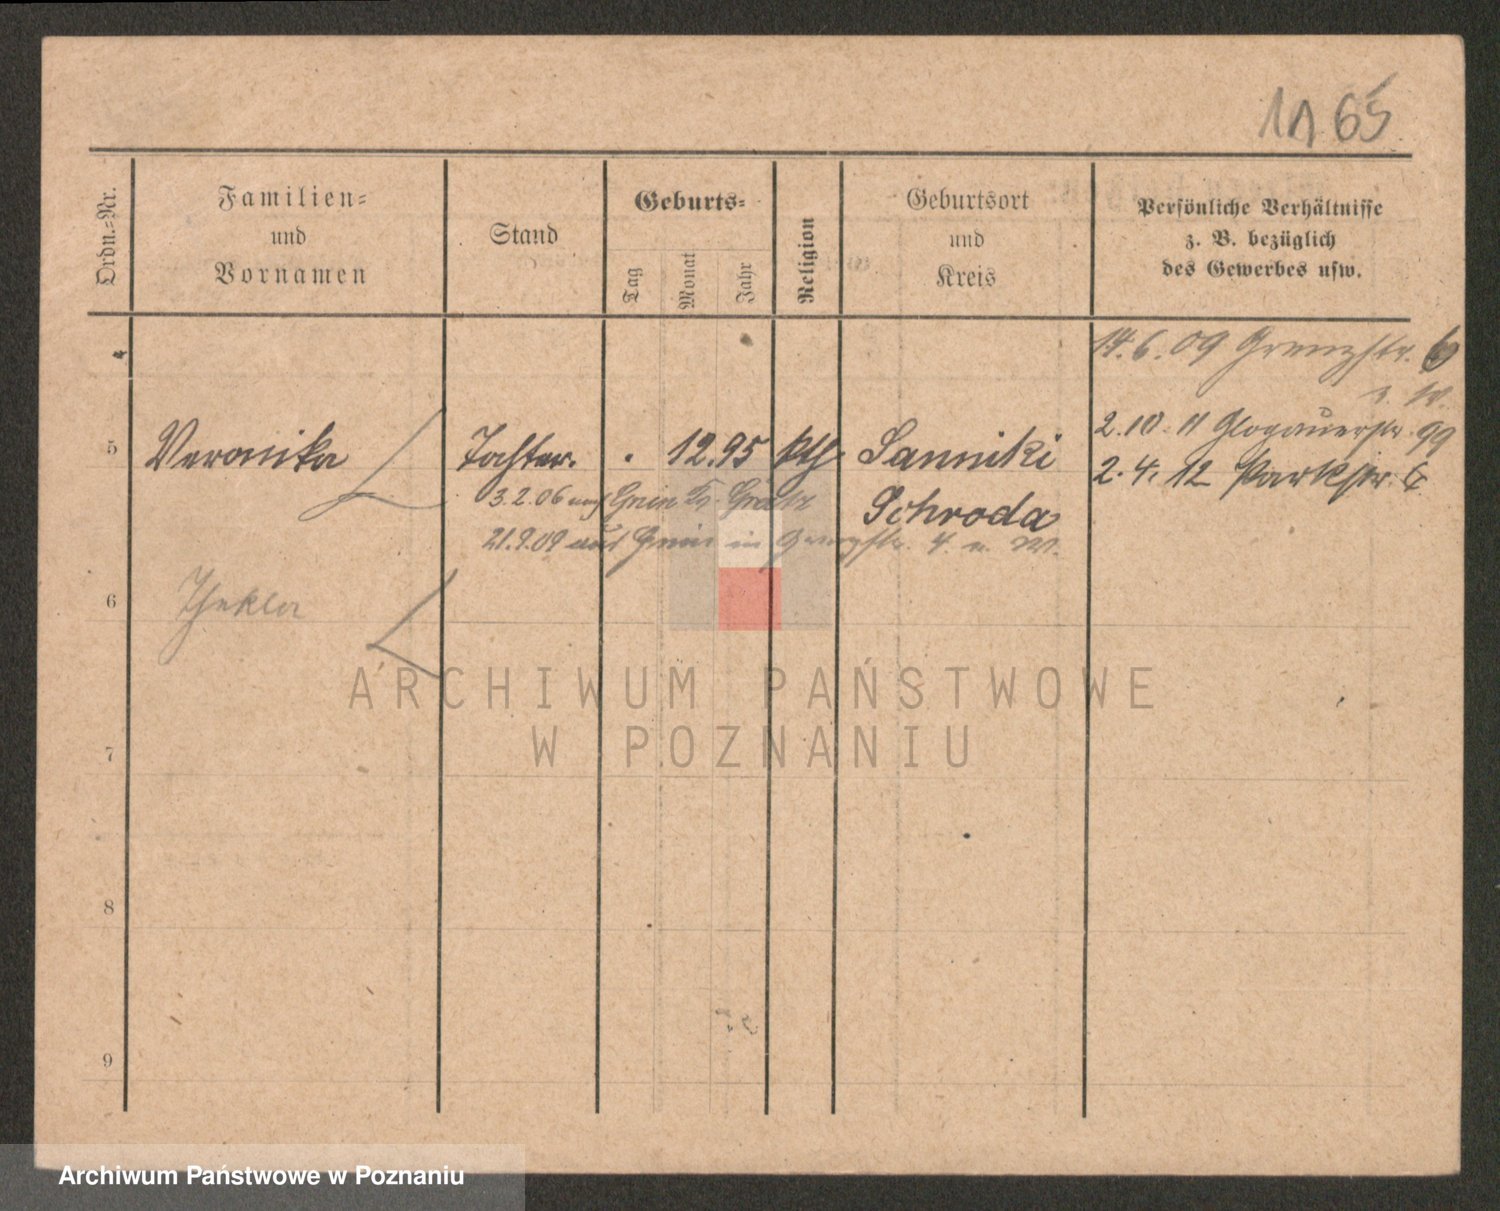 1165
Ordn.-Nr.
Familien-
und
Vornamen
Stand
Geburts-
Tag
Monat
Jahr
Religion
Geburtsort
und
Kreis
Persönliche Verhältnisse
z. B. bezüglich
des Gewerbes usw.
14.6.09 Grenzstr. 6
2.10.11 Glogauerstr. 99
2.4.12 Parkstr.
5 Veronika Tochter. 12.95 kth. Sanniki
Schroda
3.2.06 nach Grätz
21.9.09 aus in Grenzstr. 4.
6 Thekla
7
8
9
ARCHIWUM PAŃSTWOWE
W POZNANIU
Archiwum Państwowe w Poznaniu